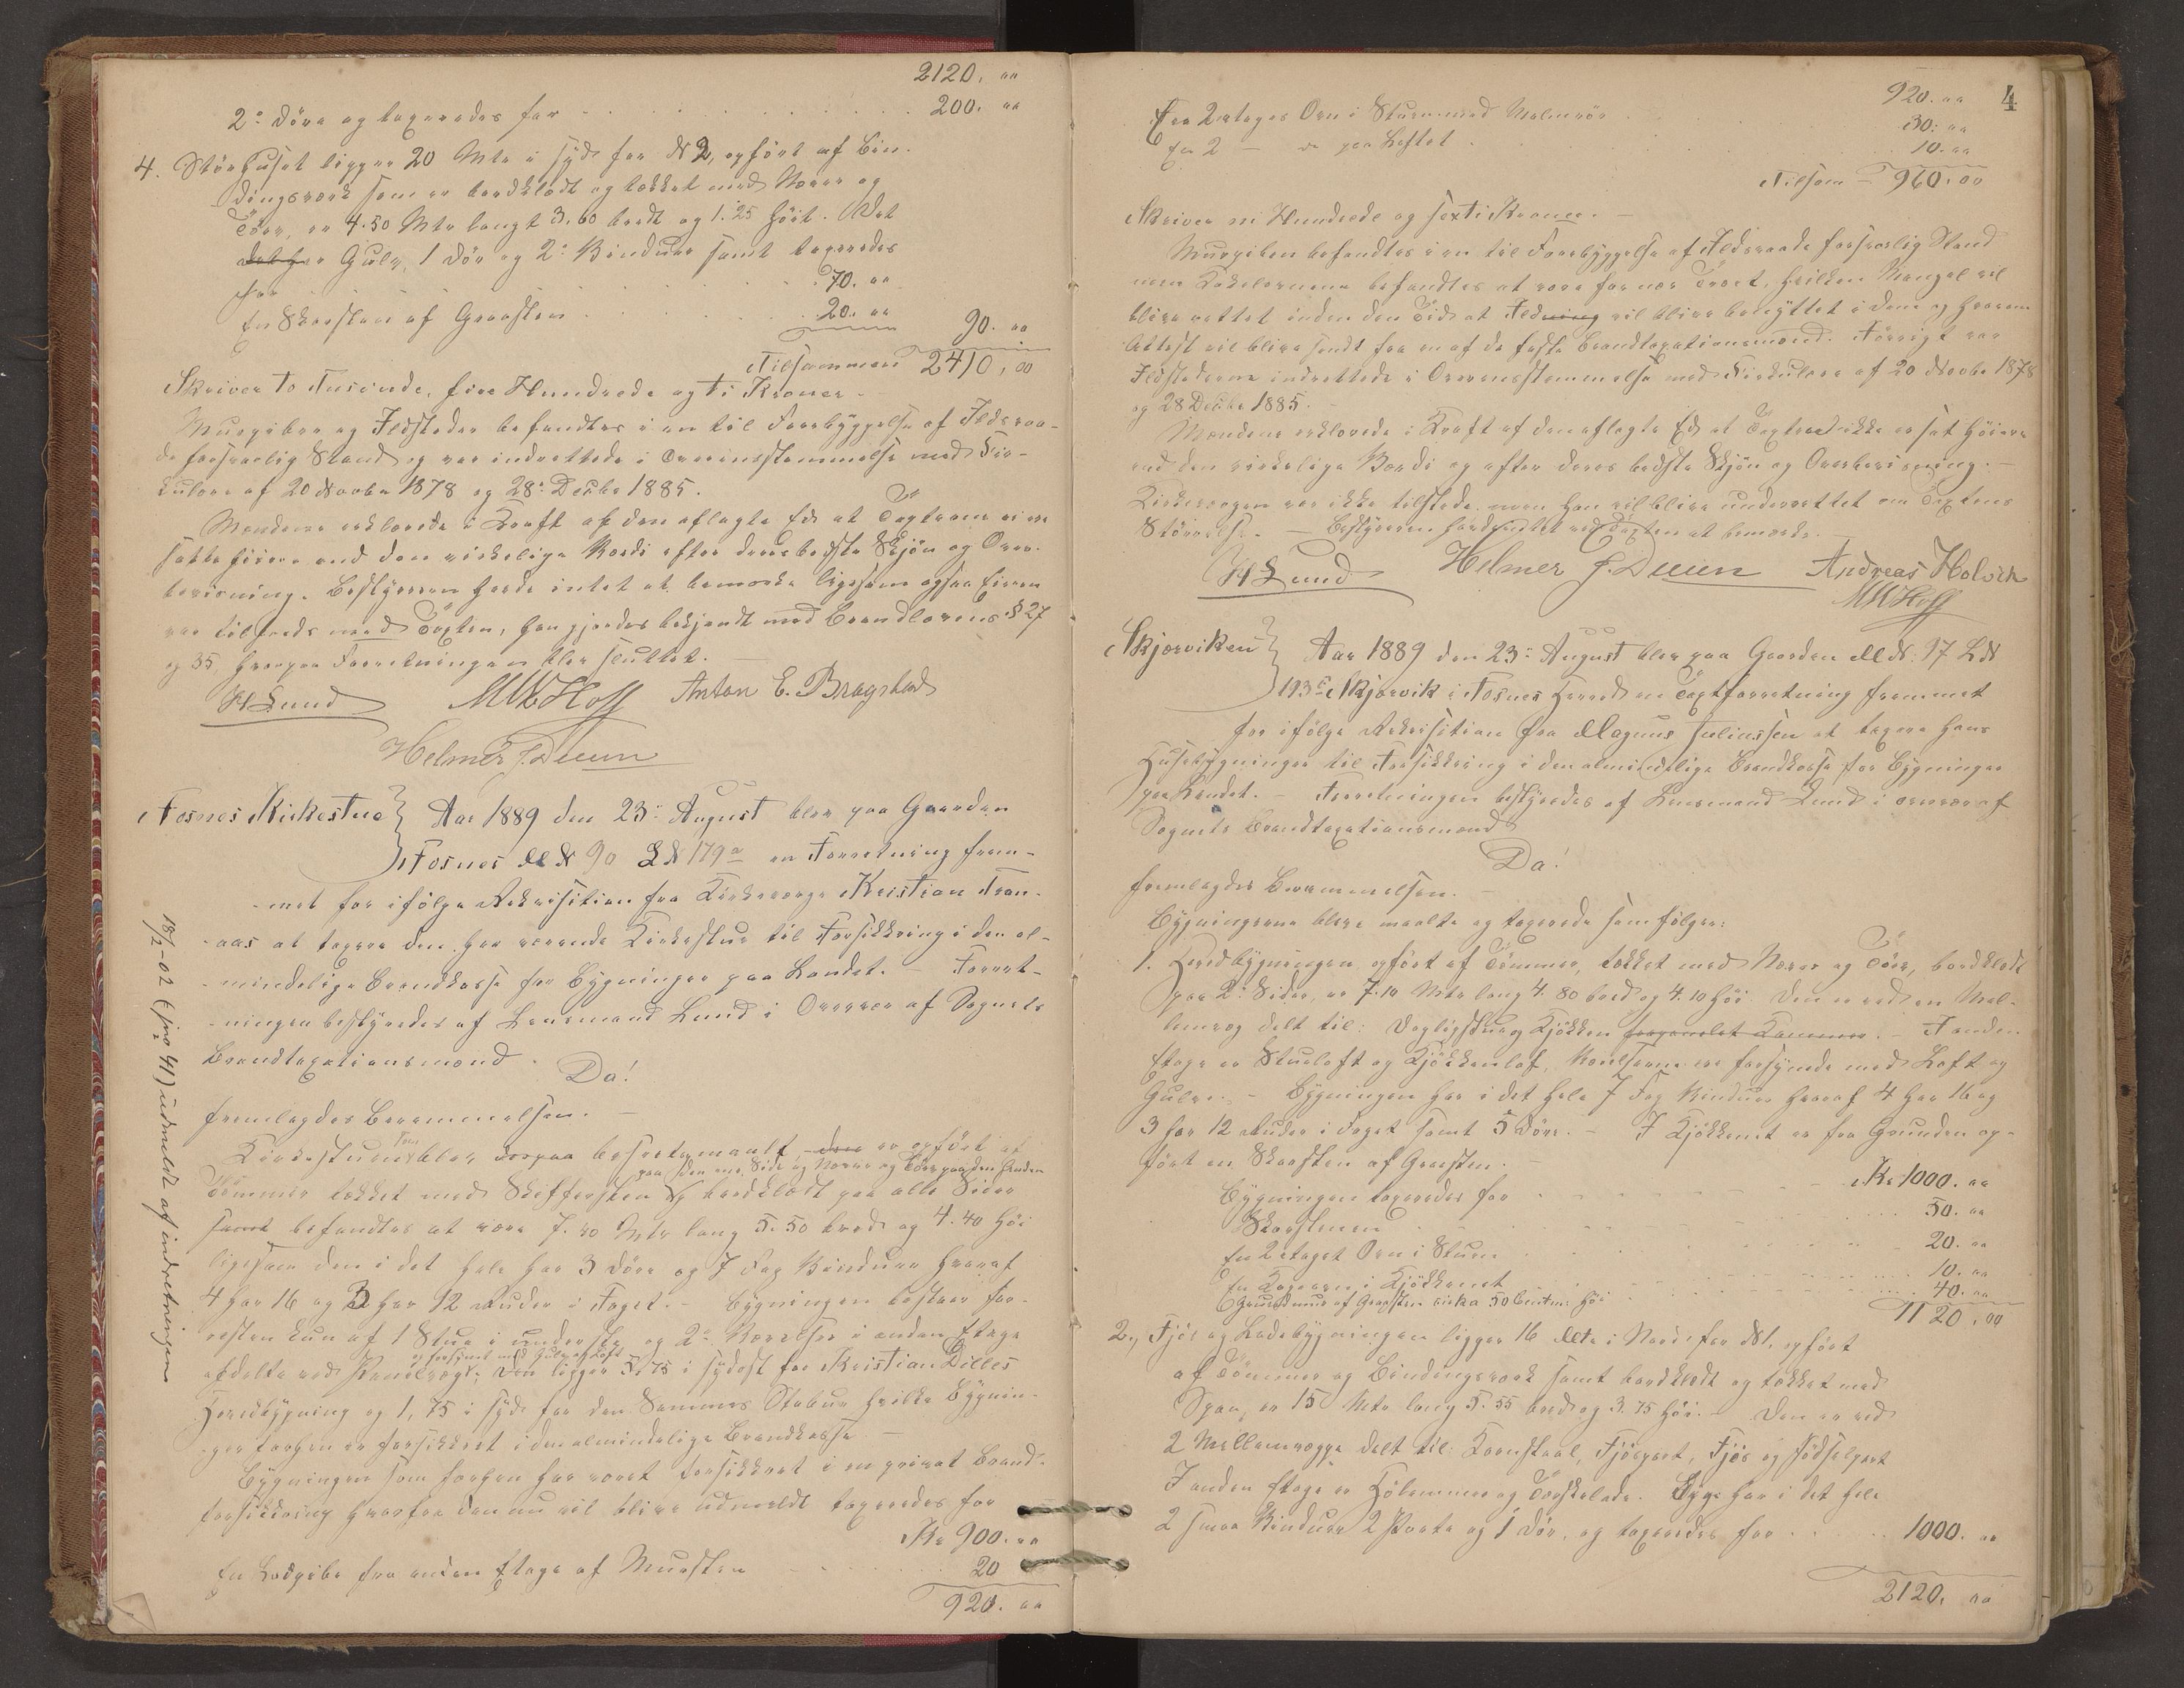 2120. "
2de Döre og taxeredes for 200. "
4. Störhuset ligger 20 Mtr i Syd for N 2, opfört af Bin-
dingsverk som er bordklædt og tækket med Næver og
Törv, er 4.50 Mtr langt 3.60 bredt og 1.25 höit. Det
det har Gulv, 1 Dör og 2de Vinduer samt taxeredes
for 70. "
En Skorsten af Graasten 20. " 90. "
Tilsammen 2410,00
Skriver to Tusinde, fire Hundrede og ti Kroner.
Murpiber og Ildsteder befandtes i en til Forebyggelse af Ildsvaa-
de forsvarlig Stand og var indrettede i Overensstemmelse med Cir-
kulære af 20 Novbr 1878 og 28de Decbr 1885.
Mændene erklærede i Kraft af den aflagte Ed at Taxterne ei ere
satte höiere end den virkelige Værdi efter deres bedste Skjön og Over-
bevisning. Bestyreren havde intet at bemærke ligesom ogsaa Eieren
var tilfreds med Taxten, han gjordes bekjendt med Brandlovens § 27
og 35, hvorpaa Forretningen blev sluttet.
H Lund M W Hoff Anton E. Bragstad
Helmer J. Duun
Fosnes Kirkestue } Aar 1889 den 23de August blev paa Gaarden
Fosnes M N 90 L N 179a en Forretning frem-
-met for ifölge Rekvisition fra Kirkeværge Kristian Tran-
-aas at taxere den her værende Kirkestue til Forsikkring i den al-
-mindelige Brandkasse for Bygninger paa Landet. - Forret-
-ningen bestyredes af Lensmand Lund i Overvær af Sognets
Brandtaxationsmænd.
Da!
fremlagdes Berammelsen. -
Kirkestuen blev besretsmaalt er opfört af
paa den ene Side og Næver og Törv paa den Anden
Tömmer tækket med Skiffersten og bordklædt paa alle Sider
samt befandtes at være 7.50 Mtr lang 5.50 bred og 4.40 höi
ligesom den i det hele har 3 Döre og 7 Fag Vinduer hvoraf
4 har 16 og 3 har 12 Ruder i Faget. - Bygningen bestaar for-
resten kun af 1 Stue i underste og 2de Værelser i anden Etage
og forsynet med Gulv og Loft
afdelte ved Panelvæg; Den ligger 5.75 i Sydost for Kristian Dilles
Hovedbygning og 1,75 i Syd for den Sammes Stabur hvilke Bygnin-
-ger forhen er forsikkret i den almindelige Brandkasse. -
Bygningen som forhen har været forsikkret i en privat Brand-
forsikkring hvorfra den nu vil blive udmeldt taxeredes for
Kr 900. "
En Lodpibe fra anden Etage af Mursten 20
920. "
18/2-02 (jno 41) udmeldt af indretningen
4
920. "
En 2 etages Ovn i Stuen med Malmrör 30. "
En 2 - do paa Loftet 10. "
Tilsam - 960.00
Skriver ni Hundrede og sexti Kroner. -
Murpiben befandtes i en til Forebyggelse af Ildsvaade forsvarlig Stand
men Kakelovnene befandtes at være for nær Træet, hvilken Mangel vil
blive rettet inden den Tid at Ild vil blive benyttet i dem og hvorom
Attest vil blive sendt fra en af de faste Brandtaxationsmænd. Forövrigt var
Ildstederne indrettede i Overensstemmelse med Cirkulære af 20 Novbr 1878
og 28 Decbr 1885. -
Mændene erklærede i Kraft af den aflagte Ed at Taxten ikke er sat höiere
end den virkelige Værdi og efter deres bedste Skjön og Overbevisning. -
Kirkeværgen var ikke tilstede, men han vil blive underrettet om Taxtens
Störrelse. - Bestyreren havde intet ved Taxten at bemærke. -
H Lund Helmer J. Duun Andreas Holvik
M W Hoff
Skjærviken } Aar 1889 den 23de August blev paa Gaarden M N: 97 L N
193c Skjærvik i Fosnes Herred en Taxtforretning fremmet
for ifölge Rekvisition fra Magnus Juliussen at taxere hans
Husebygninger til Forsikkring i den almindelige Brandkasse for Bygninger
paa Landet. - Forretningen bestyredes af Lensmand Lund i overvær af
Sognets Brandtaxationsmænd
Da!
fremlagdes Berammelsen. -
Bygningerne bleve maalte og taxerede som fölger:
1. Hovedbygningen opfört af Tömmer, tækket med Næver og Törv, bordklædt
paa 2de Sider, er 7.10 Mtr lang 4.80 bred og 4.10 höi. Den er ved en Mel-
lemvæg delt til: Dagligstue og Kjökken forpanelet Kammer. - I anden
Etage er Stueloft og Kjökkenloft, Værelserne ere forsynede med Loft og
Gulve. - Bygningen har i det hele 7 Fag Vinduer hvoraf 4 har 16 og
3 har 12 Ruder i Faget samt 5 Döre. - I Kjökkenet er fra Grunden op-
fört en Skorsten af Graasten. -
Bygningen taxeredes for Kr 1000. "
Skorstenen 50. "
En 2 etages Ovn i Stuen 20. "
En Kogeovn i Kjökkenet 10. "
Grundmur af Graasten cirka 50 Centm: höi 40. "
1120,00
2, Fjös og Ladebygningen ligger 16 Mtr i Nord for N 1, opfört
af Tömmer og Bindingsverk samt bordklædt og tækket med
Spaan, er 15 Mtr lang 5.55 bred og 3.75 höi. - Den er ved
2 Mellemvægge delt til: Kornstaal, Fjösport, Fjös og Födselport
I anden Etage er Hölemmer og Tærskelade. Bygn har i det hele
2 smaa Vinduer 2 Porte og 1 Dör, og taxeredes for 1000. "
2120. "